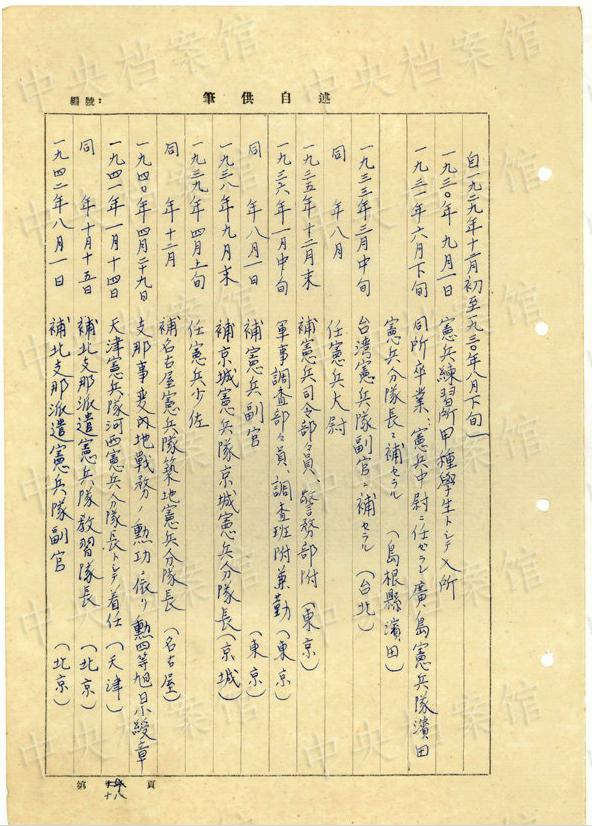 編號：
筆供自述
自一九二九年十二月初至一九三〇年八月下旬）
一九三〇年 九月一日 憲兵練習所甲種學生トシテ入所
一九三一年六月下旬 同所卒業、憲兵中尉ニ任ゼラレ廣島憲兵隊濱田
憲兵分隊長ニ補セラル （島根縣濱田）
一九三三年三月中旬 台湾憲兵隊副官ニ補セラル （台北）
同 年八月 任憲兵大尉
一九三五年十二月末 補憲兵司令部々員、警務部附 （東京）
一九三六年一月中旬 軍事調査部々員、調査班附兼勤 （東京）
同 年八月一日 補憲兵副官 （東京）
一九三八年九月末 補京城憲兵隊京城憲兵分隊長 （京城）
一九三九年四月上旬 任憲兵少佐
同 年十二月 補名古屋憲兵隊築地憲兵分隊長 （名古屋）
一九四〇年四月二十九日 支那事変内地戰務ノ勲功ニ依リ勲四等旭日小綬章
一九四一年一月十四日 天津憲兵隊河西憲兵分隊長トシテ着任 （天津）
同 年十月十五日 補北支那派遣憲兵隊教習隊長 （北京）
一九四二年八月一日 補北支那派遣憲兵隊副官 （北京）
第 十八 頁
中央档案馆